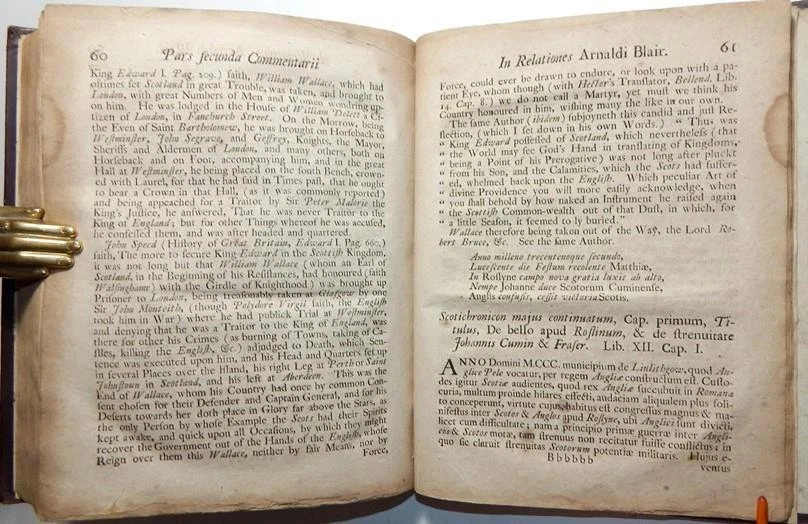 60 Pars secunda Commentarii
King Edward I. Pag. 209.) saith, William Wallace, which had
oftimes set Scotland in great Trouble, was taken, and brought to
London, with great Numbers of Men and Women wondring up-
on him. He was lodged in the House of William Delett a Ci-
tizen of London, in Fanchurch Street. On the Morrow, being
the Even of Saint Bartholomew, he was brought on Horseback to
Westminster, John Segrave, and Geffrey, Knights, the Mayor,
Sheriffs and Aldermen of London, and many others, both on
Horseback and on Foot, accompanying him, and in the great
Hall at Westminster, he being placed on the south Bench, crown-
ed with Laurel, for that he had said in Times past, that he ought
to bear a Crown in that Hall, (as it was commonly reported)
and being appeached for a Traitor by Sir Peter Malorie the
King's Justice, he answered, That he was never Traitor to the
King of England; but for other Things whereof he was accused,
he confessed them, and was after headed and quartered.
John Speed (History of Great Britain, Edward I. Pag. 660.)
saith, The more to secure King Edward in the Scottish Kingdom,
it was not long but that William Wallace (whom an Earl of
Scotland, in the Beginning of his Resistances, had honoured (saith
Walsinghame) with the Girdle of Knighthood) was brought up
Prisoner to London, being treasonably taken at Glasgow by one
Sir John Monteith, (though Polydore Virgil saith, the English
took him in War) where he had publick Trial at Westminster,
and denying that he was a Traitor to the King of England, was
there for other his Crimes (as burning of Towns, taking of Ca-
stles, killing the English, &c.) adjudged to Death, which Sen-
tence was executed upon him, and his Head and Quarters set up
in several Places over the Island, his right Leg at Perth or Saint
Johnstoun in Scotland, and his left at Aberdeen. This was the
End of Wallace, whom his Country had once by common Con-
sent chosen for their Defender and Captain General, and for his
Deserts towards her doth place in Glory far above the Stars, as
the only Person by whose Example the Scots had their Spirits
kept awake, and quick upon all Occasions, by which they might
recover the Government out of the Hands of the English, whose
Reign over them this Wallace, neither by fair Means, nor by
Force,
In Relationes Arnaldi Blair. 61
Force, could ever be drawn to endure, or look upon with a pa-
tient Eye, whom though (with Hector's Translator, Bellend. Lib.
14. Cap. 8.) we do not call a Martyr, yet must we think his
Country honoured in him, wishing many the like in our own.
The same Author (ibidem) subjoyneth this candid and just Re-
flection, (which I set down in his own Words.) " Thus was
" King Edward possessed of Scotland, which nevertheless (that
" the World may see God's Hand in translating of Kingdoms,
" being a Point of his Prerogative) was not long after pluckt
" from his Son, and the Calamities, which the Scots had suffer-
" ed, whelmed back upon the English. Which peculiar Art of
" divine Providence you will more easily acknowledge, when
" you shall behold by how naked an Instrument he raised again
" the Scottish Common-wealth out of that Dust, in which, for
" a little Season, it seemed to ly buried."
Wallace therefore being taken out of the Way, the Lord Ro-
bert Bruce, &c. See the same Author.
Anno milleno trecentenoque secundo,
Lucescente die Festum recolente Matthiæ,
In Roslyne campo nova gratia luxit ab alto,
Nempe Johanne duce Scotorum Cuminense,
Anglis confusis, cessit victoria Scotis.
Scotichronicon majus continuatum, Cap. primum, Ti-
tulus, De bello apud Roslinum, & de strenuitate
Johannis Cumin & Fraser. Lib. XII. Cap. I.
ANNO Domini M.CCC. municipium de Linlithgow, quod An-
glice Pele vocatur, per regem Angliæ constructum est. Custo-
des igitur Scotiæ audientes, quod rex Angliæ succubuit in Romana
curia, multum proinde hilares effecti, audaciam aliqualem plus soli-
to conceperunt, virtute cujus, habitus est congressus magnus & ma-
nifestus inter Scotos & Anglos apud Roslyne, ubi Anglici sunt divicti,
licet cum difficultate; nam a principio primæ guerræ inter Angli-
cos & Scotos motæ, tam strenuus non recitatur fuisse conflictus; in
quo sic claruit strenuitas Scotorum potentiæ militaris. Hujus e-
Bbbbbb ventus